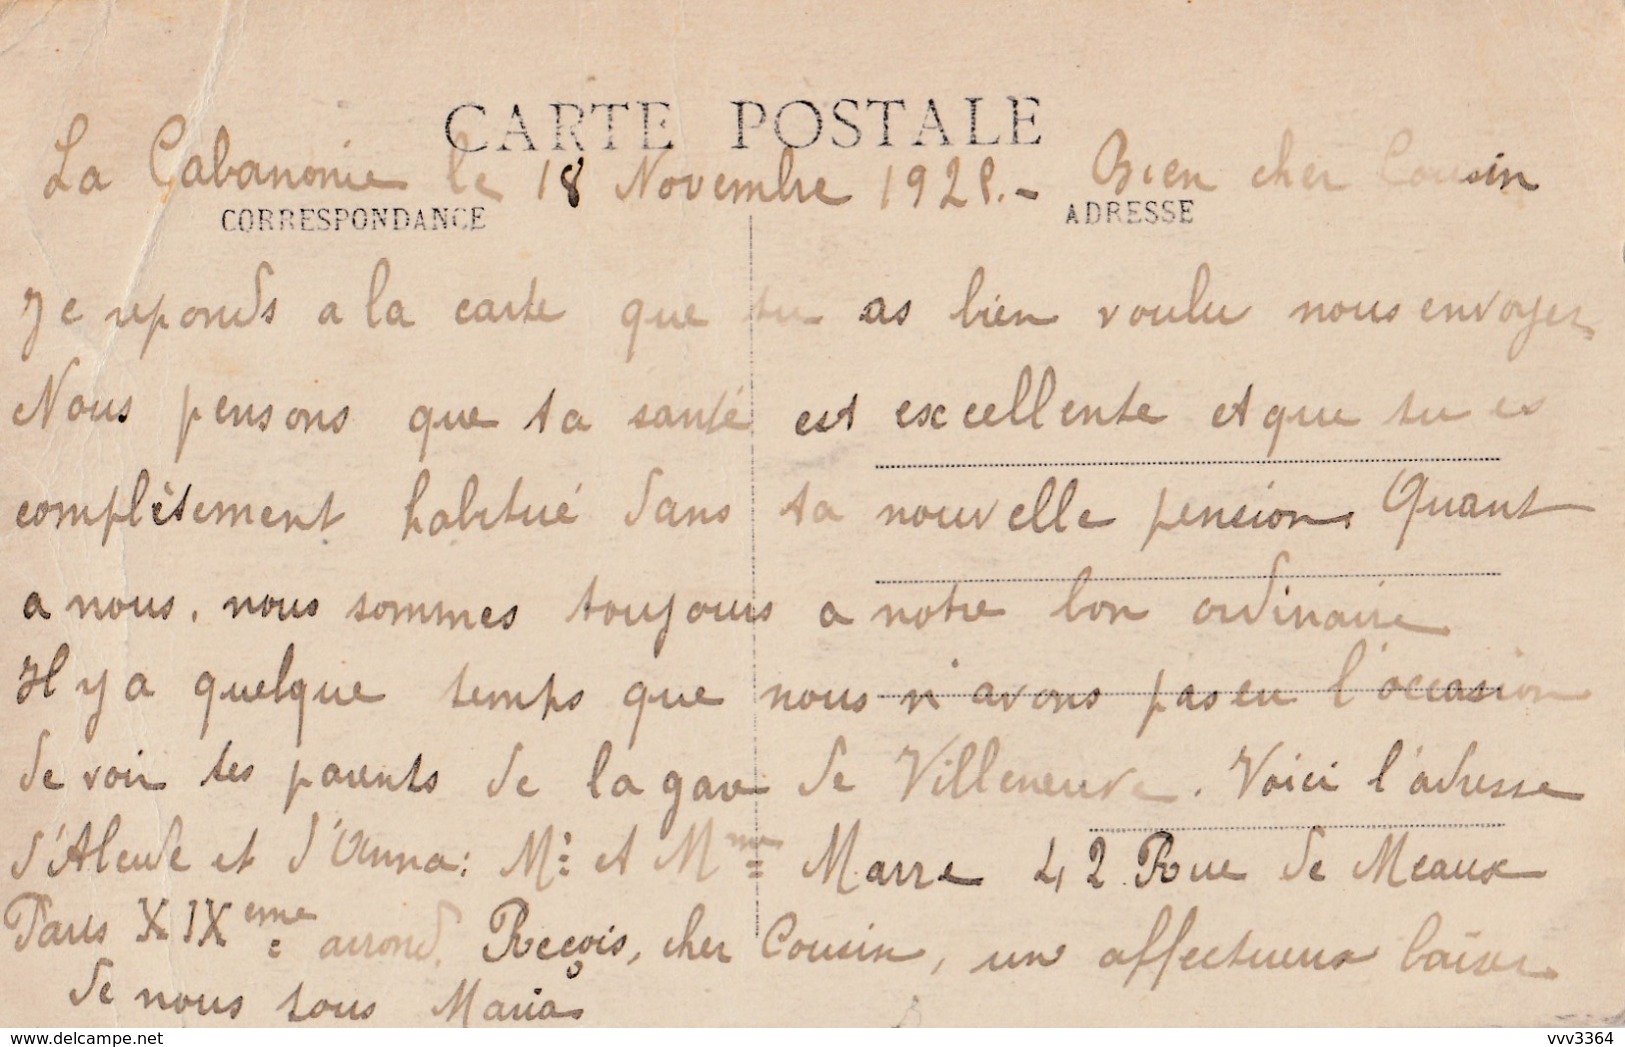 CARTE POSTALE
La Cabanonie le 18 Novembre 1928.- Bien cher Cousin
CORRESPONDANCE
ADRESSE
Je reponds a la carte que tu as bien voulu nous envoyer
Nous pensons que ta santé est excellente et que tu es
complètement habitué dans ta nouvelle pension. Quant
a nous, nous sommes toujours a notre bon ordinaire
Il y a quelque temps que nous n'avons pas eu l'occasion
de voir tes parents de la gare de Villeneuve. Voici l'adresse
d'Alcide et d'Anna: Mr et Mme Marre 42 Rue de Meaux
Paris XIXeme arrond. Reçois, cher Cousin, un affectueux baiser
de nous tous Maria
delcampe.net
vvv3364